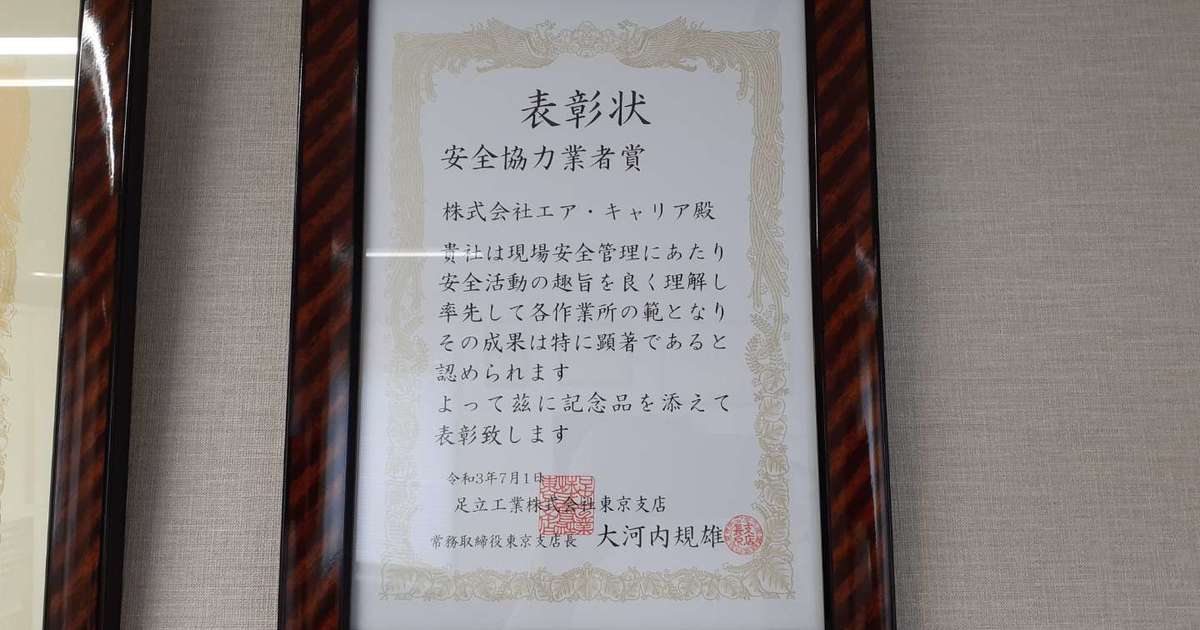 表彰状
安全協力業者賞
株式会社エア・キャリア殿
貴社は現場安全管理にあたり
安全活動の趣旨を良く理解し
率先して各作業所の範となり
その成果は特に顕著であると
認められます
よって茲に記念品を添えて
表彰致します
令和3年7月1日
足立工業株式会社東京支店
常務取締役東京支店長 大河内規雄